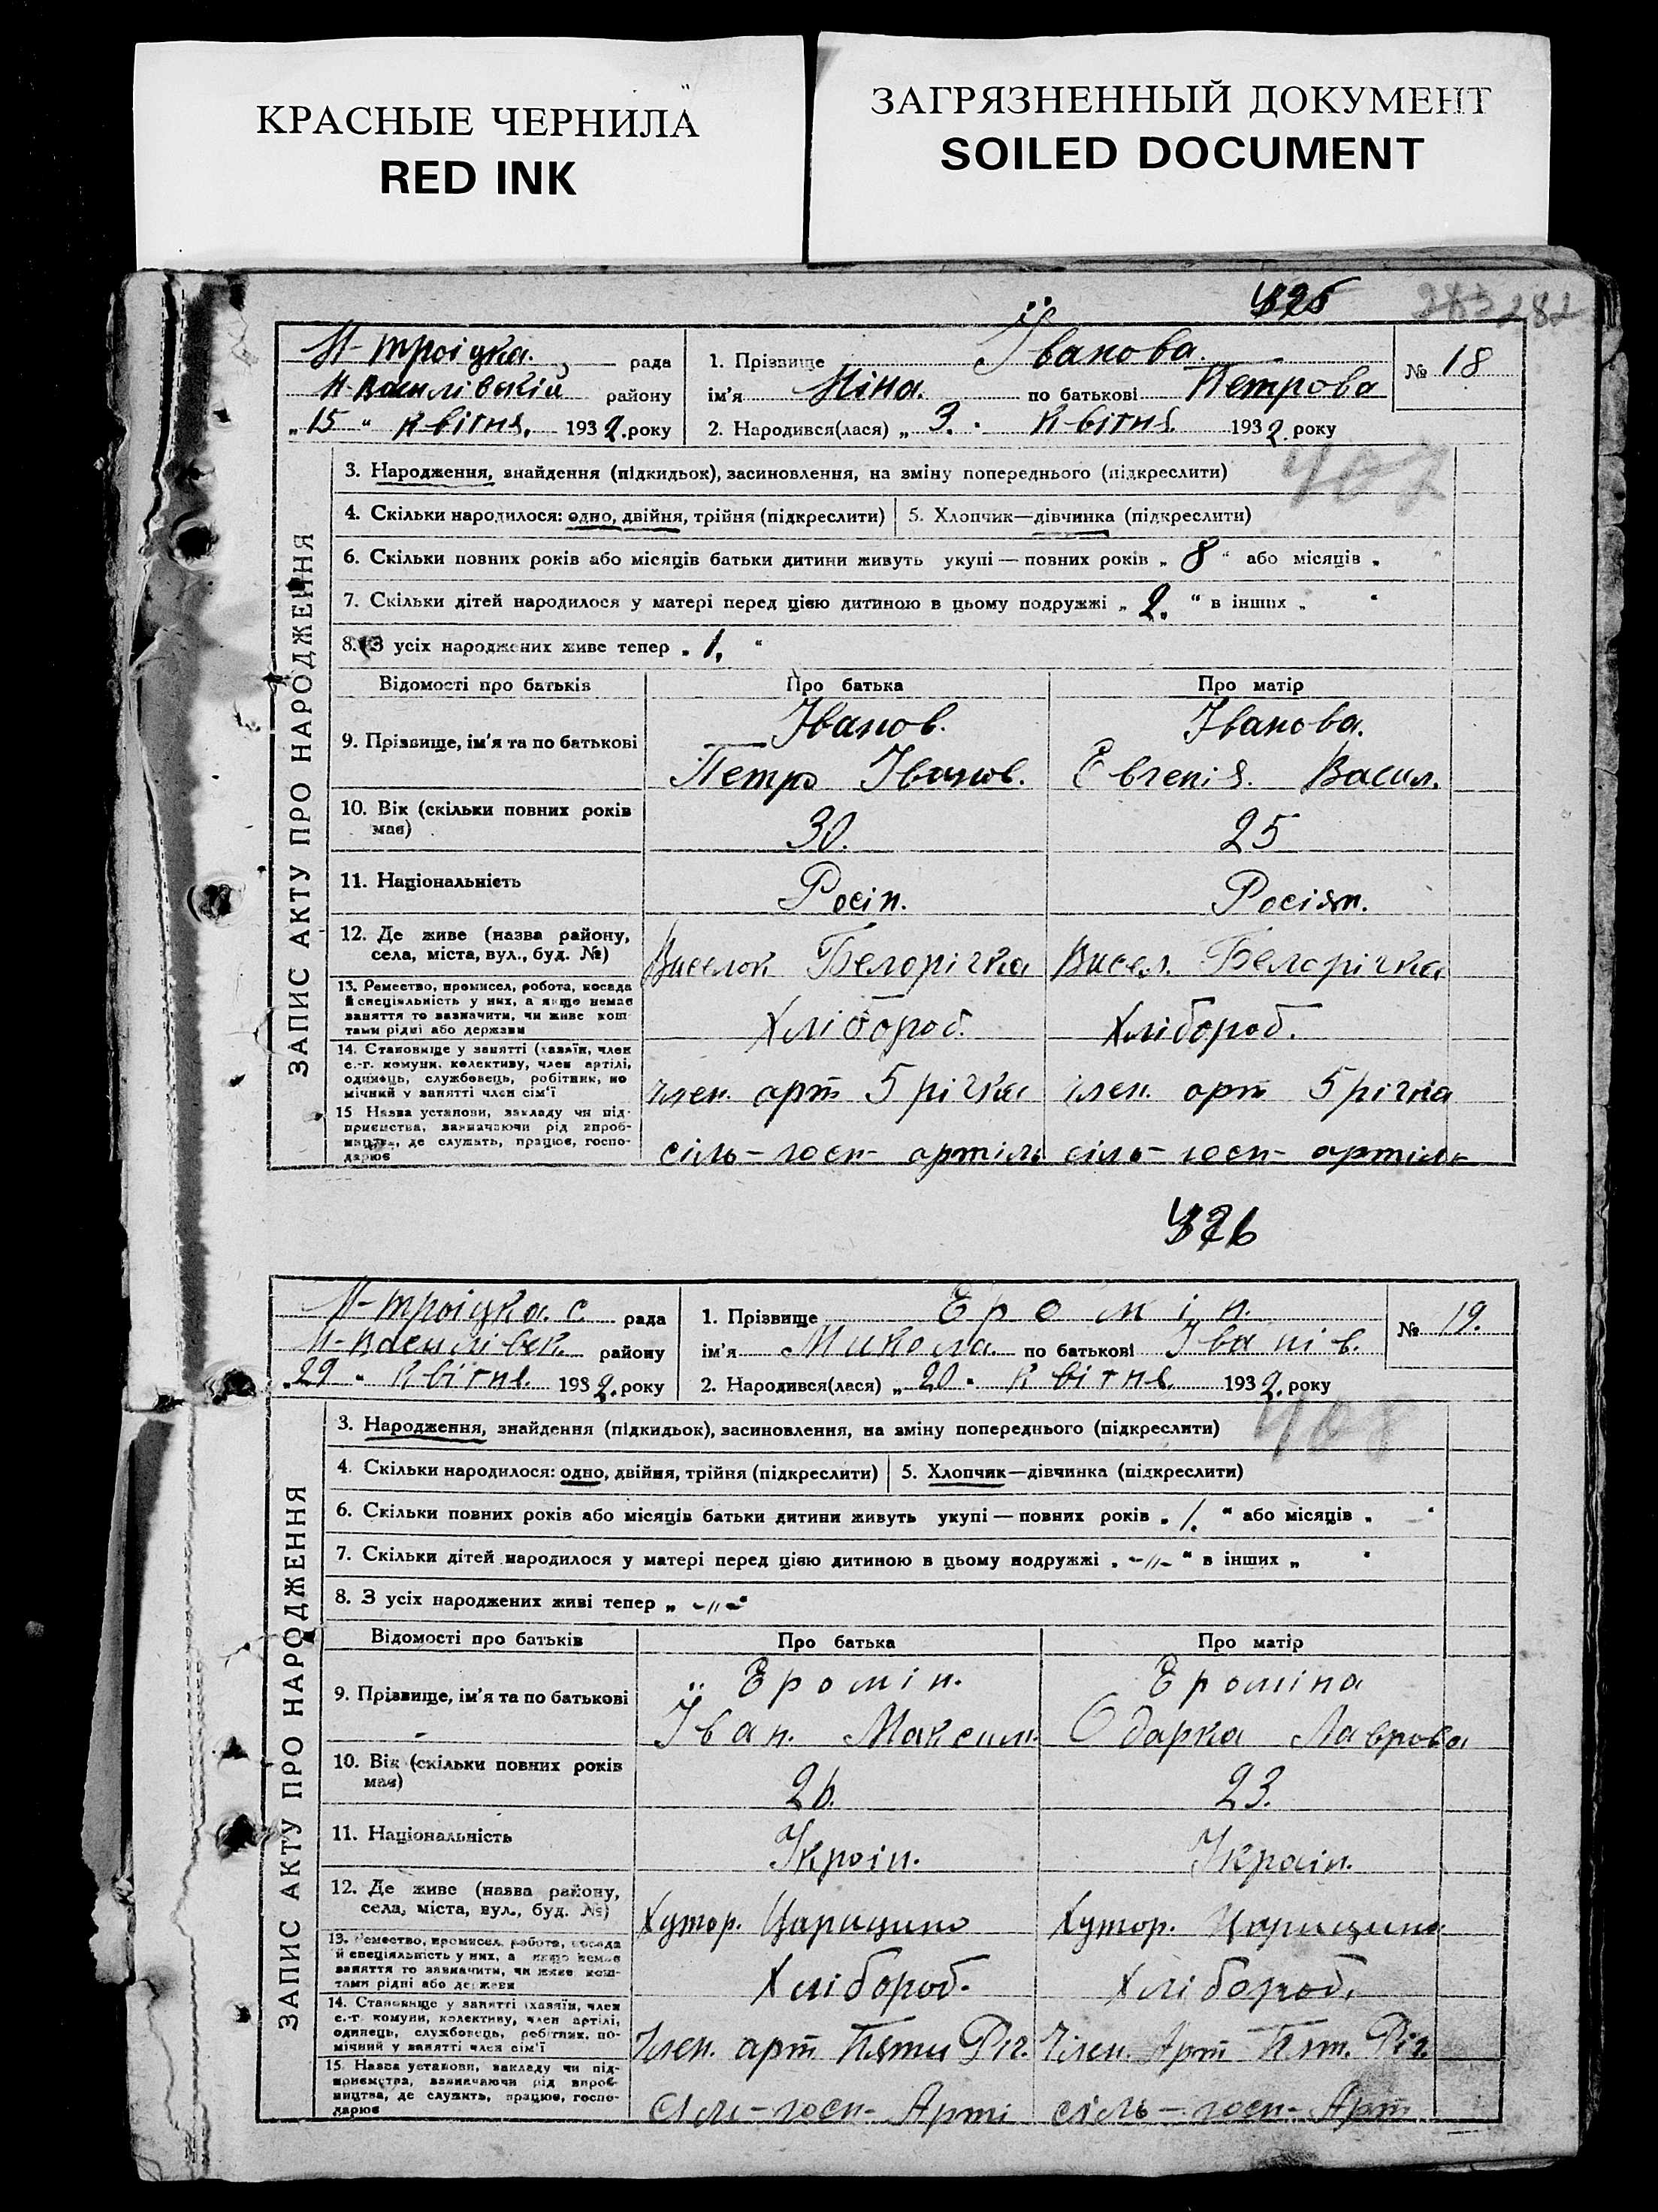 КРАСНЫЕ ЧЕРНИЛА
RED INK
ЗАГРЯЗНЕННЫЙ ДОКУМЕНТ
SOILED DOCUMENT
282
Н-троіцка. рада
Н-Василівській району
„15“ Квітня. 1932. року
1. Прізвище Іванова.
ім'я Ніна. по батькові Петрова
2. Народився(лася) „3.“ Квітня 1932. року
№ 18
407
ЗАПИС АКТУ ПРО НАРОДЖЕННЯ
3. Народження, знайдення (підкидьок), засиновлення, на зміну попереднього (підкреслити)
4. Скільки народилося: одно, двійня, трійня (підкреслити) 5. Хлопчик—дівчинка (підкреслити)
6. Скільки повних років або місяців батьки дитини живуть укупі — повних років „8“ або місяців „ “
7. Скільки дітей народилося у матері перед цією дитиною в цьому подружжі „2.“ в інших „ “
8. З усіх народжених живе тепер „1.“
Відомості про батьків Про батька Про матір
9. Прізвище, ім'я та по батькові
Іванов. Іванова.
Петро Іванов. Евгенія. Васил.
10. Вік (скільки повних років має)
30. 25
11. Національність
Росін. Росіян.
12. Де живе (назва району, села, міста, вул., буд. №)
Виселок Белорічка Висел. Белорічка
13. Ремество, промисел, робота, посада й спеціяльність у них, а якщо немає заняття то зазначити, чи живе коштами рідні або держави
Хлібороб. Хлібороб.
14. Становище у занятті (хазяїн, член с.-г. комуни, колективу, член артілі, одинець, службовець, робітник, помічний у занятті член сім'ї
член. арт 5 річка член. арт 5 річка
15 Назва установи, закладу чи підприємства, зазначаючи рід виробництва, де служить, працює, господарює
сіль-госп- артіль сіль-госп- артіль
426
Н-троіцка. с. рада
Н-Василівськ. району
„29“ Квітня. 1932. року
1. Прізвище Еромін.
ім'я Микола. по батькові Іванів.
2. Народився(лася) „20“ Квітня. 1932. року
№ 19.
408
ЗАПИС АКТУ ПРО НАРОДЖЕННЯ
3. Народження, знайдення (підкидьок), засиновлення, на зміну попереднього (підкреслити)
4. Скільки народилося: одно, двійня, трійня (підкреслити) 5. Хлопчик—дівчинка (підкреслити)
6. Скільки повних років або місяців батьки дитини живуть укупі — повних років „1.“ або місяців „ “
7. Скільки дітей народилося у матері перед цією дитиною в цьому подружжі „-"-“ в інших „ “
8. З усіх народжених живі тепер „-"-“
Відомості про батьків Про батька Про матір
9. Прізвище, ім'я та по батькові
Еромін. Ероміна
Іван. Максим. Одарка Лаврова
10. Вік (скільки повних років має)
26. 23.
11. Національність
Украін. Украін.
12. Де живе (назва району, села, міста, вул., буд. №)
Хутор. Царицино Хутор. Царицино
13. Ремество, промисел, робота, посада й спеціяльність у них, а якщо немає заняття то зазначити, чи живе коштами рідні або держави
Хлібороб. Хлібороб.
14. Становище у занятті (хазяїн, член с.-г. комуни, колективу, член артілі, одинець, службовець, робітник, помічний у занятті член сім'ї
Член. арт Пяти Річ. Член. Арт Пят. Річ.
15. Назва установи, закладу чи підприємства, зазначаючи рід виробництва, де служить, працює, господарює
Сіль-госп- Арті сіль-госп- Арт